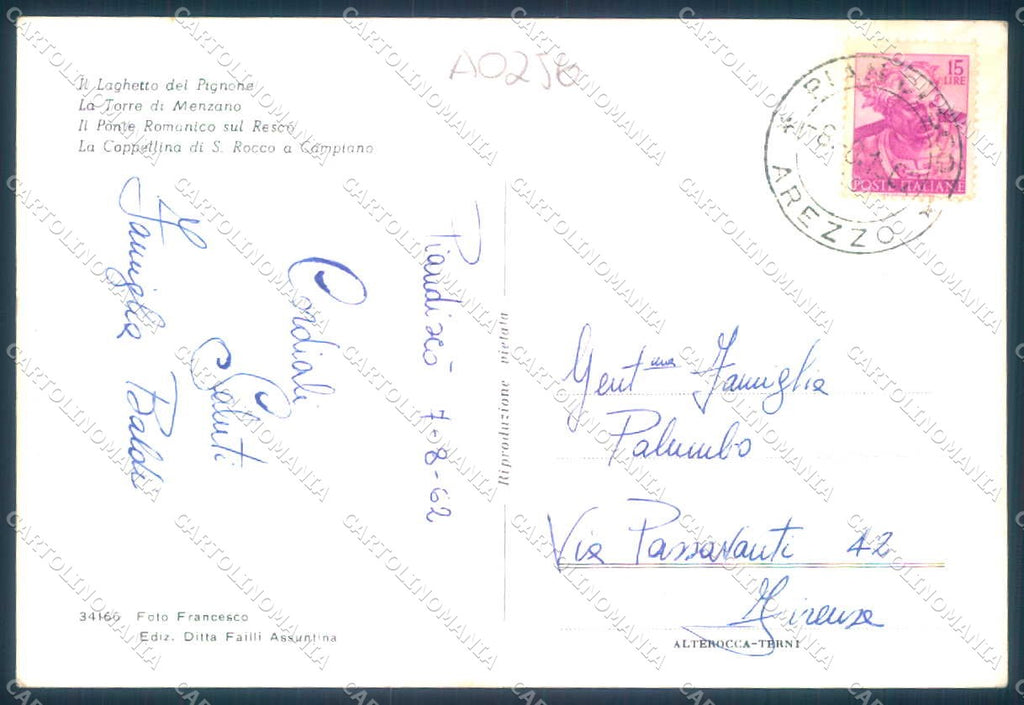 Il Laghetto del Pignone
La Torre di Menzano
Il Ponte Romanico sul Resco
La Cappellina di S. Rocco a Campiano
A0256
15
LIRE
POSTE ITALIANE
AREZZO
Piandiscò 7-8-62
Cordiali
Saluti
Famiglia Baldi
Riproduzione vietata
Gent.ma Famiglia
Palumbo
Via Passavanti 42
Firenze
34166 Foto Francesco
Ediz. Ditta Failli Assuntina
ALTEROCCA-TERNI
CARTOLINOMANIA